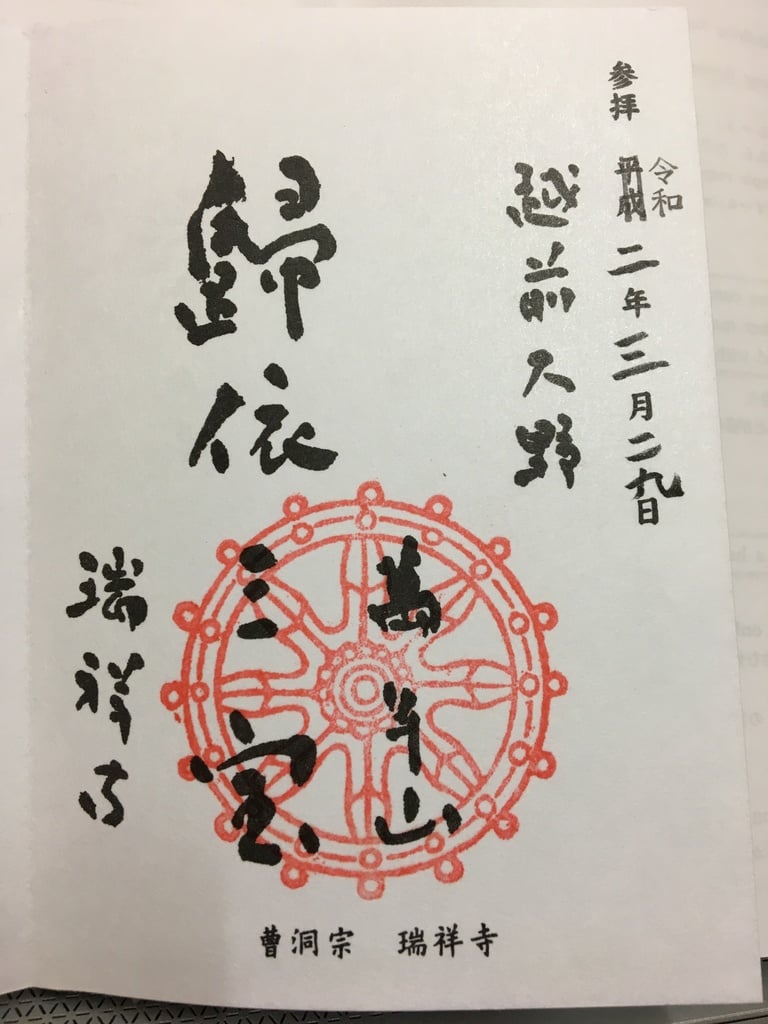 参拝 平成 令和 二年三月二九日
越前大野
萬年山
歸依三宝
瑞祥寺
曹洞宗 瑞祥寺